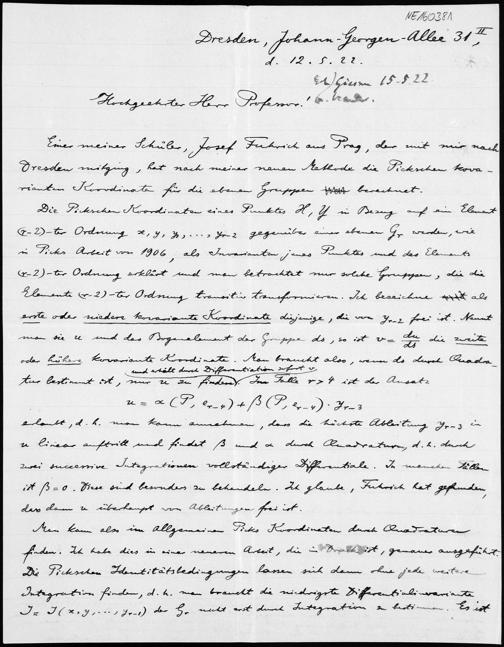 NE160381
Dresden, Johann-Georgen-Allee 31, II
d. 12. 5. 22.
15. 5 22
Hochgeehrter Herr Professor!
Einer meiner Schüler, Josef Fuhrich aus Prag, der mit mir nach
Dresden mitging, hat nach meiner neuen Methode die Pickschen kova-
rianten Koordinate für die ebenen Gruppen berechnet.
Die Pickschen Koordinaten eines Punktes X, Y in Bezug auf ein Element
(r-2)-ter Ordnung x, y, y₁, ..., yr-2 gegenüber einer ebenen Gr werden, wie
in Picks Arbeit von 1906, als Invarianten jenes Punktes und des Elements
(r-2)-ter Ordnung erklärt und man betrachtet nur solche Gruppen, die die
Elemente (r-2)-ter Ordnung transitiv transformieren. Ich bezeichne als
erste oder niedere kovariante Koordinate diejenige, die von yr-2 frei ist. Nennt
man sie u und das Bogenelement der Gruppe ds, so ist v = du/ds die zweite
oder höhere kovariante Koordinate. Man braucht also, wenn ds durch Quadra-
und erhält durch Differentiation sofort v
tur bestimmt ist, nur u zu finden. Im Falle r > 4 ist der Ansatz
u = α (P, er-4) + β (P, er-4) · yr-3
erlaubt, d. h. man kann annehmen, dass die höchste Ableitung yr-3 in
u linear auftritt und findet β und α durch Quadraturen, d. h. durch
zwei successive Integrationen vollständiger Differentiale. In manchen Fällen
ist β = 0. Diese sind besonders zu behandeln. Ich glaube, Fuhrich hat gefunden,
dass dann u überhaupt von Ableitungen frei ist.
Man kann also im Allgemeinen Picks Koordinaten durch Quadraturen
finden. Ich habe dies in einer neueren Arbeit, die ist, genauer ausgeführt.
Die Pickschen Identitätsbedingungen lassen sich dann ohne jede weitere
Integration finden, d. h. man braucht die niedrigste Differentialinvariante
J = J (x, y, ..., yr-1) der Gr nicht erst durch Integration zu bestimmen. Es ist